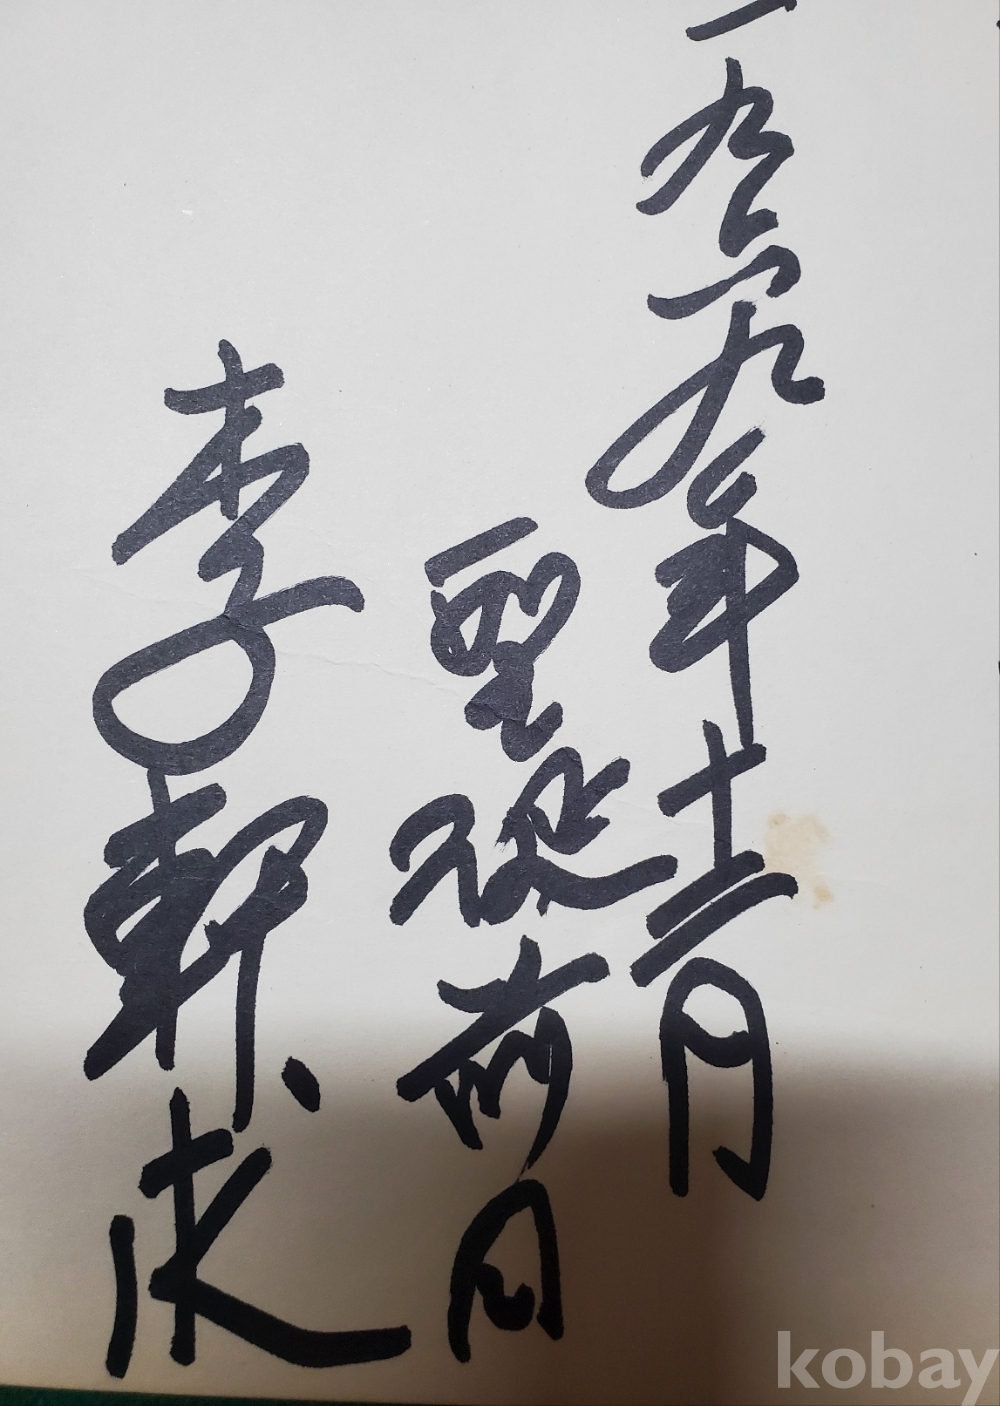 一九九年十二月
聖誕前日
李軒求
kobay